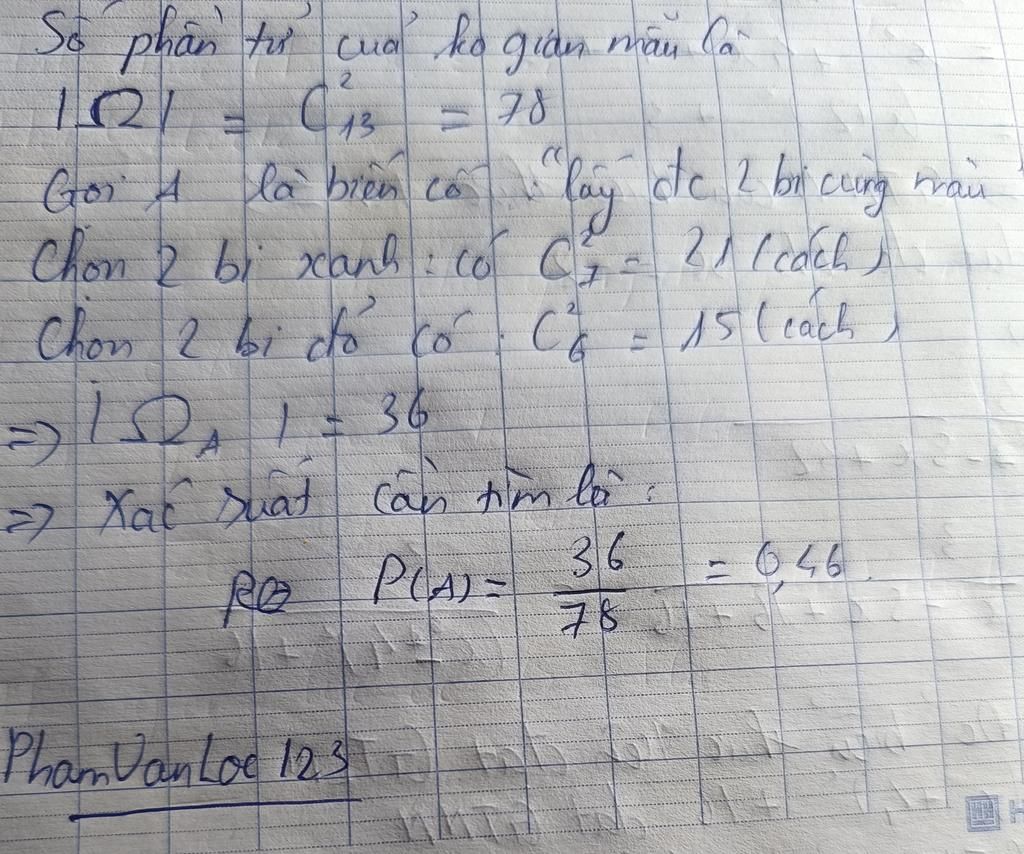 Số phần tử của ko gian mẫu là
|Ω| = C²₁₃ = 78
Gọi A là biến cố : "lấy đc 2 bi cùng màu"
Chọn 2 bi xanh : có C²₇ = 21 (cách)
Chọn 2 bi đỏ có : C²₆ = 15 (cách)
=> |Ω_A| = 36
=> Xác suất cần tìm là :
P(A) = 36/78 = 0,46.
PhamVanLoc 123
H